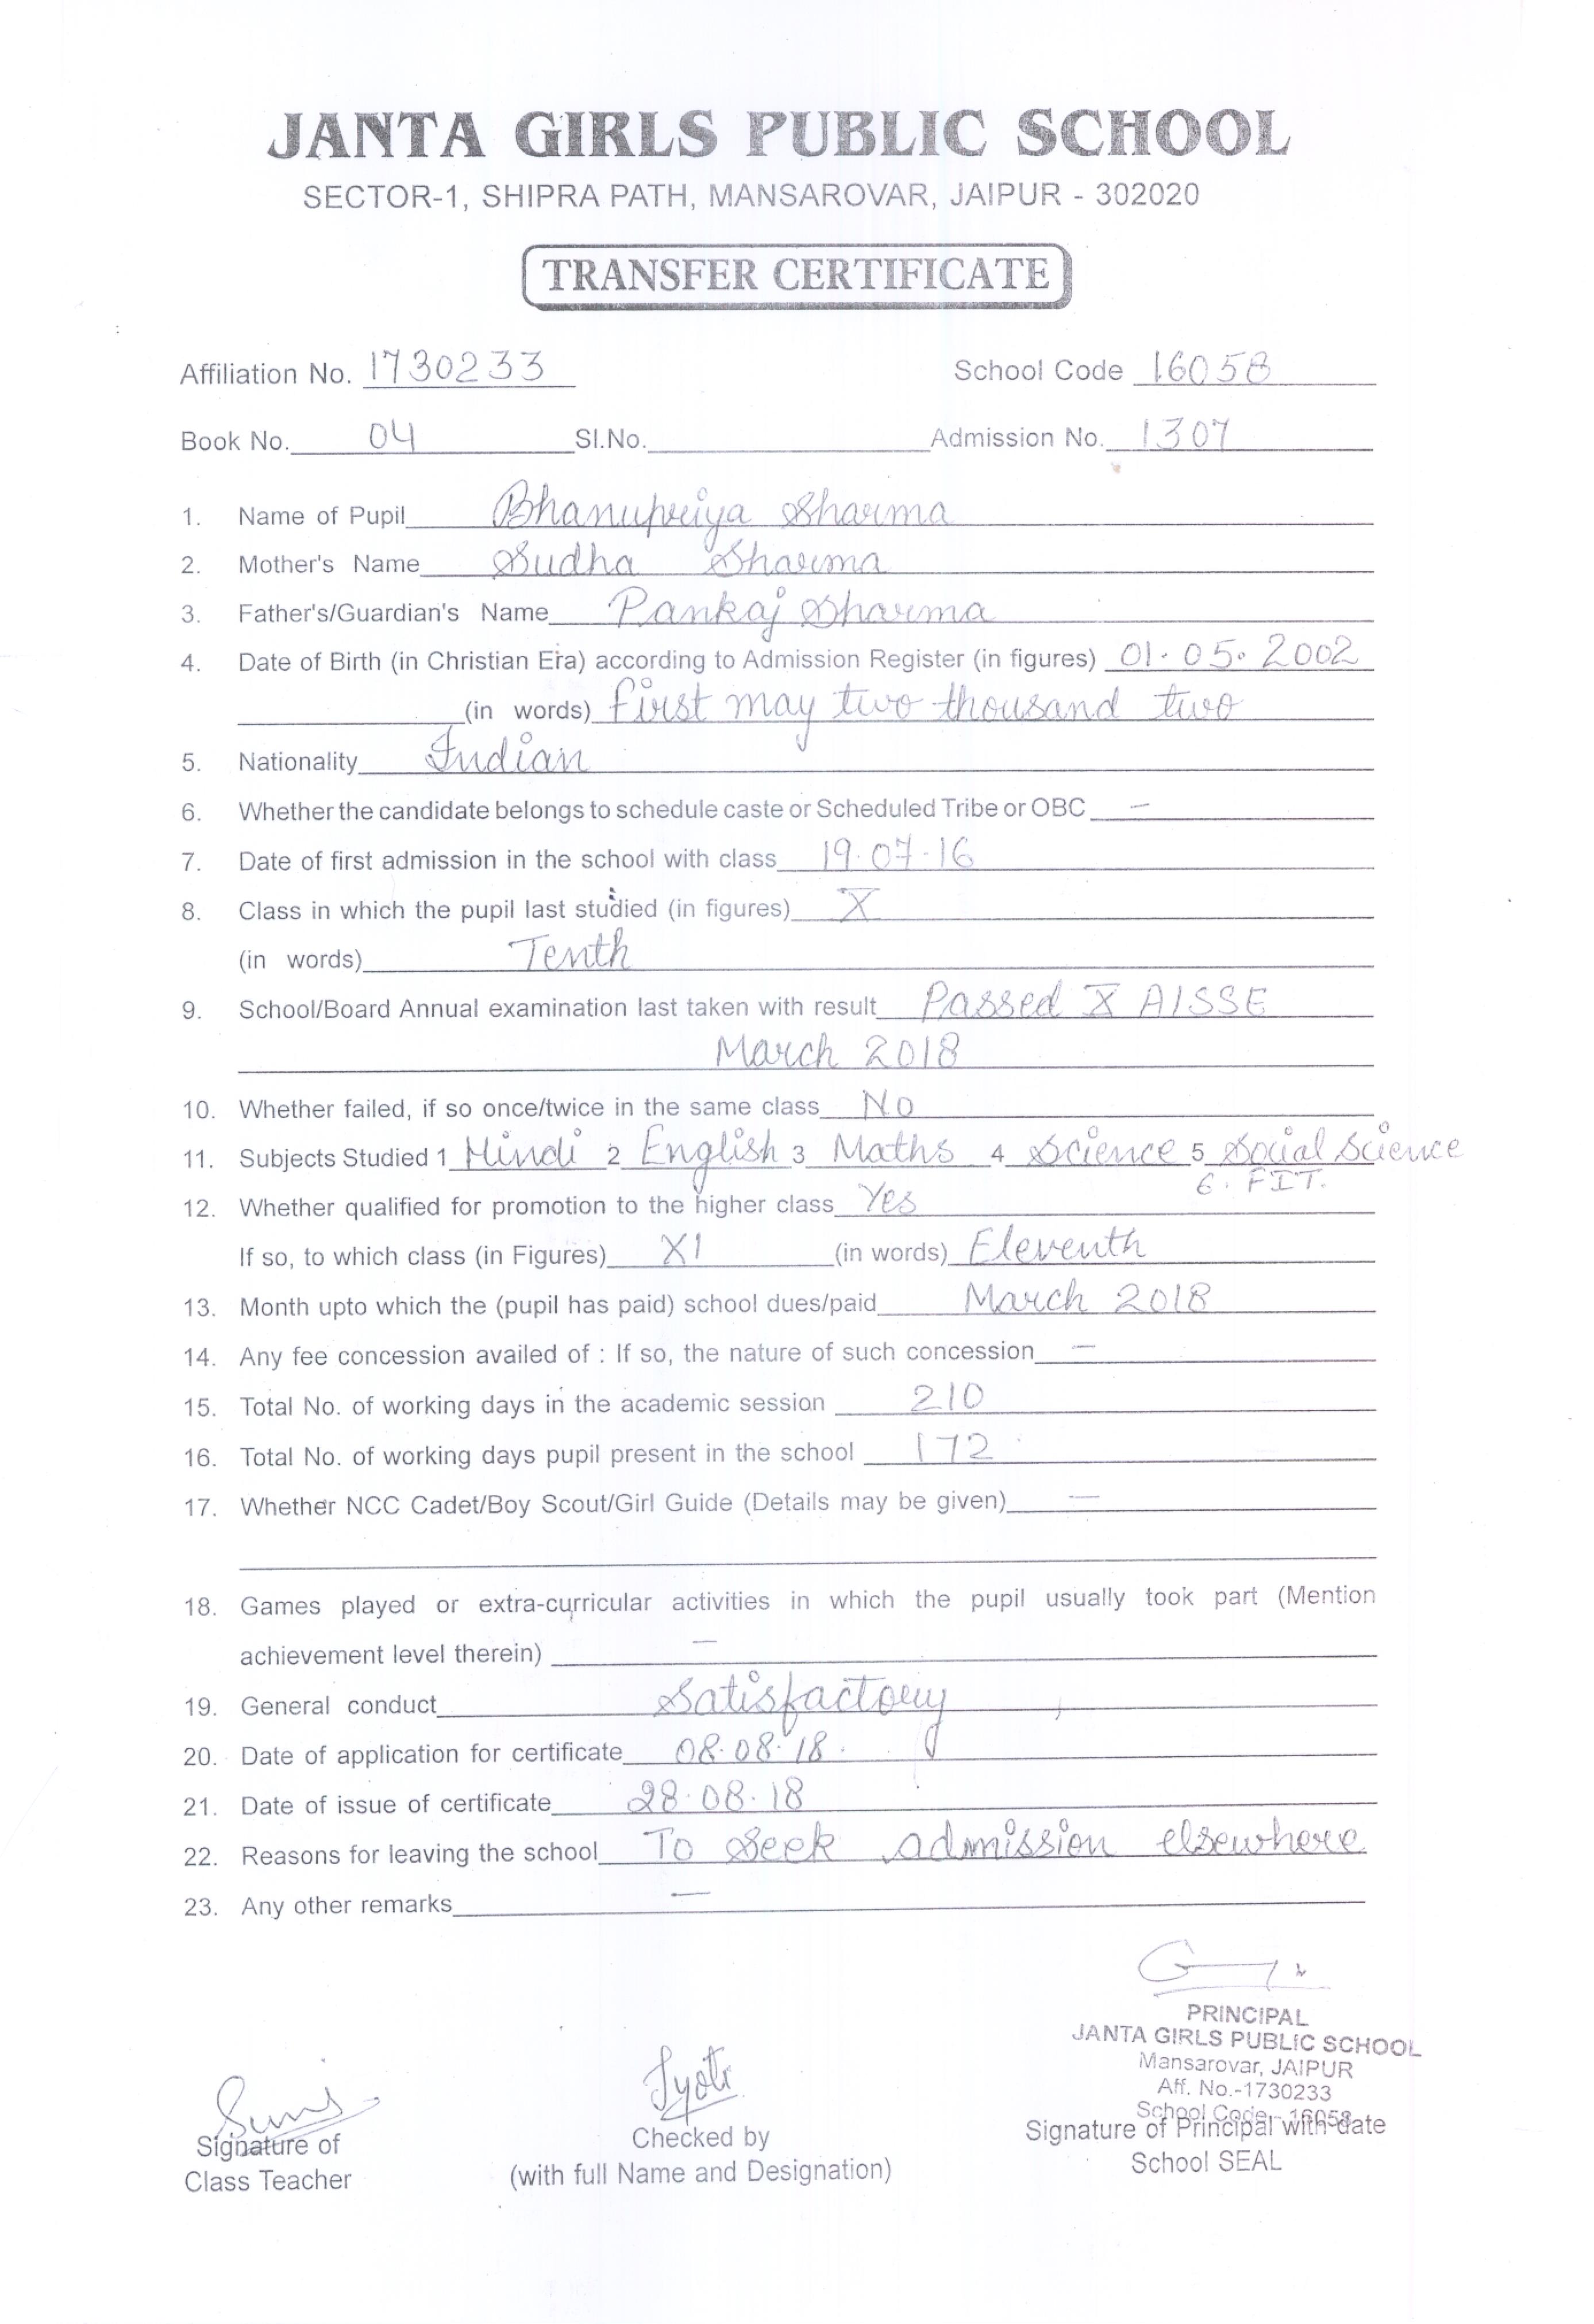 JANTA GIRLS PUBLIC SCHOOL
SECTOR-1, SHIPRA PATH, MANSAROVAR, JAIPUR - 302020
TRANSFER CERTIFICATE
Affiliation No. 1730233 School Code 16058
Book No. 04 Sl.No. Admission No. 1307
1. Name of Pupil Bhanupriya Sharma
2. Mother's Name Sudha Sharma
3. Father's/Guardian's Name Pankaj Sharma
4. Date of Birth (in Christian Era) according to Admission Register (in figures) 01.05.2002
(in words) First may two thousand two
5. Nationality Indian
6. Whether the candidate belongs to schedule caste or Scheduled Tribe or OBC —
7. Date of first admission in the school with class 19.07.16
8. Class in which the pupil last studied (in figures) X
(in words) Tenth
9. School/Board Annual examination last taken with result Passed X AISSE
March 2018
10. Whether failed, if so once/twice in the same class No
11. Subjects Studied 1 Hindi 2 English 3 Maths 4 Science 5 Social Science
6. FIT.
12. Whether qualified for promotion to the higher class Yes
If so, to which class (in Figures) XI (in words) Eleventh
13. Month upto which the (pupil has paid) school dues/paid March 2018
14. Any fee concession availed of : If so, the nature of such concession —
15. Total No. of working days in the academic session 210
16. Total No. of working days pupil present in the school 172
17. Whether NCC Cadet/Boy Scout/Girl Guide (Details may be given) —
18. Games played or extra-curricular activities in which the pupil usually took part (Mention
achievement level therein) —
19. General conduct Satisfactory
20. Date of application for certificate 08.08.18.
21. Date of issue of certificate 28.08.18
22. Reasons for leaving the school To Seek admission elsewhere
23. Any other remarks —
PRINCIPAL
JANTA GIRLS PUBLIC SCHOOL
Mansarovar, JAIPUR
Aff. No.-1730233
School Code- 16058
Jyoti
Signature of Checked by Signature of Principal with date
Class Teacher (with full Name and Designation) School SEAL